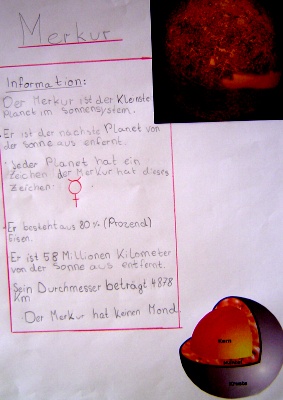 Merkur
Information:
Der Merkur ist der Kleinste
Planet im Sonnensystem.
Er ist der nächste Planet von
der Sonne aus enfernt.
Jeder Planet hat ein
Zeichen der Merkur hat dieses
Zeichen: ☿
Er besteht aus 80% (Prozend)
Eisen.
Er ist 58 Millionen Kilometer
von der Sonne aus entfernt.
Sein Durchmesser beträgt 4878
Km
Der Merkur hat keinen Mond.
Kern
Mantel
Kruste